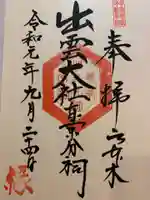 奉拝
出雲大社東京分祠
令和元年九月二十四日
六本木